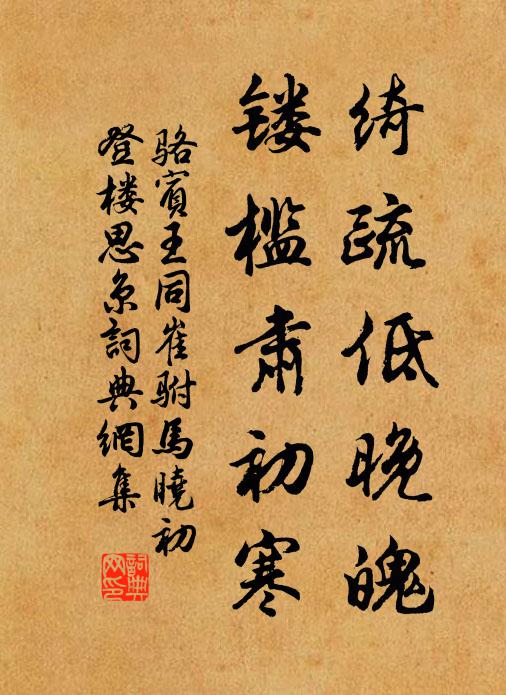 绮疏低晚魄
镂槛肃初寒
骆賓王同崔駙馬曉初
登楼思京詞典網集
詞典
网印